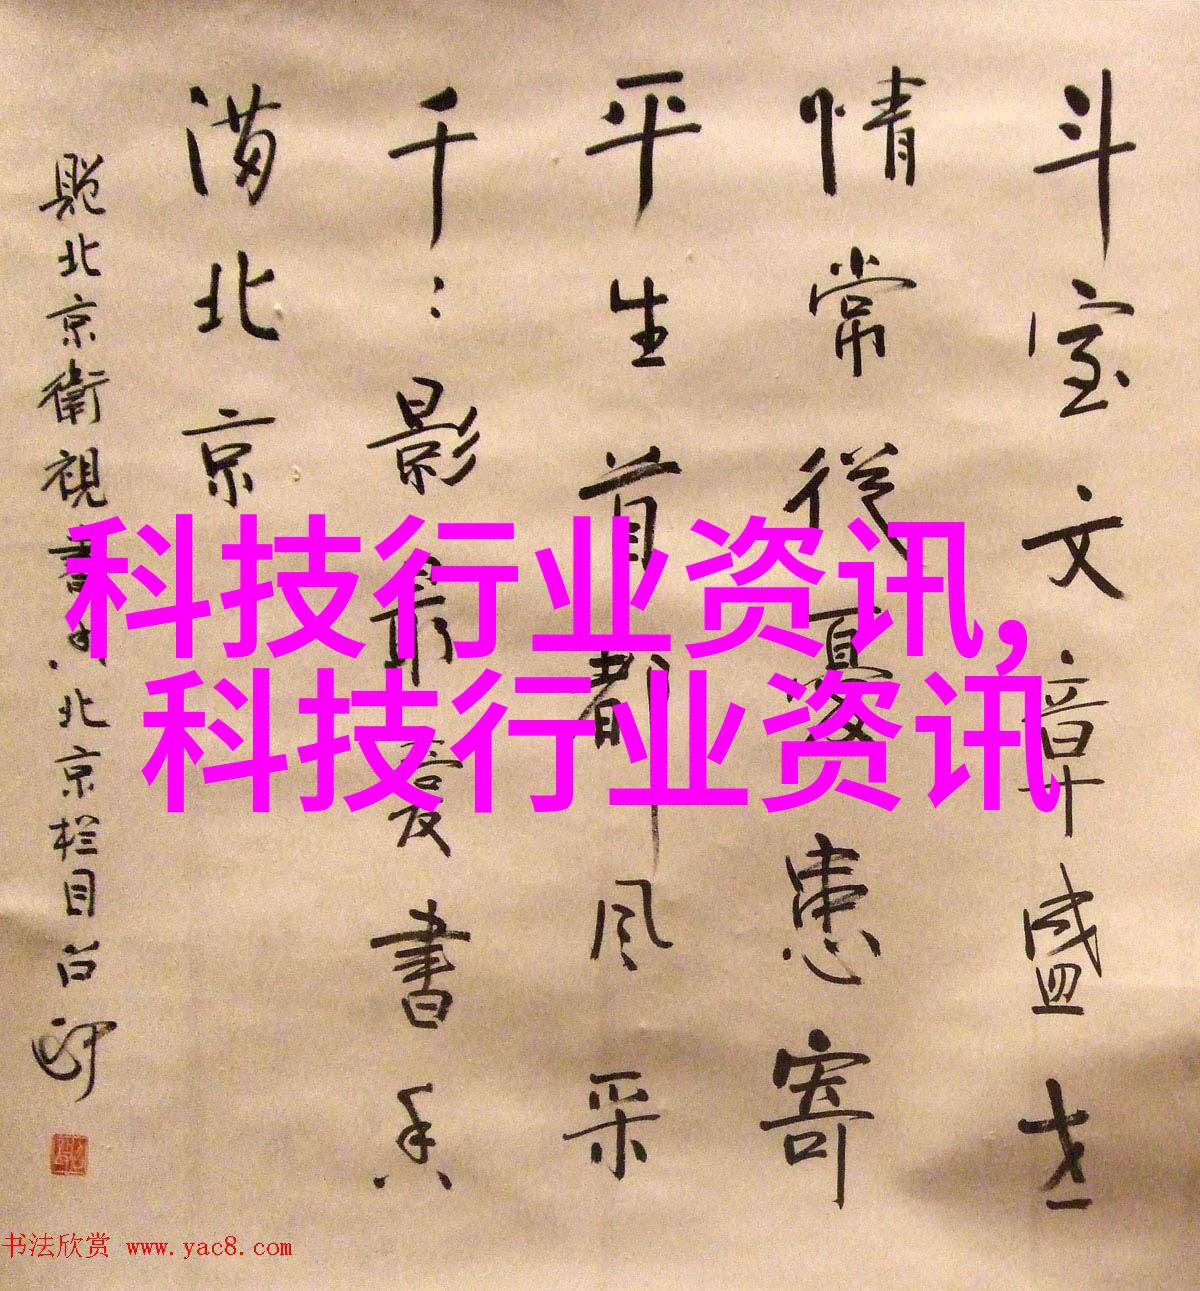 斗室文章盛世
情常從憂患寄
平生首都风采
千:影最愛書香
满北京
题北京衛視書香北京栏目
科技行业资讯,
科技行业资讯
书法欣赏 www.yac8.com